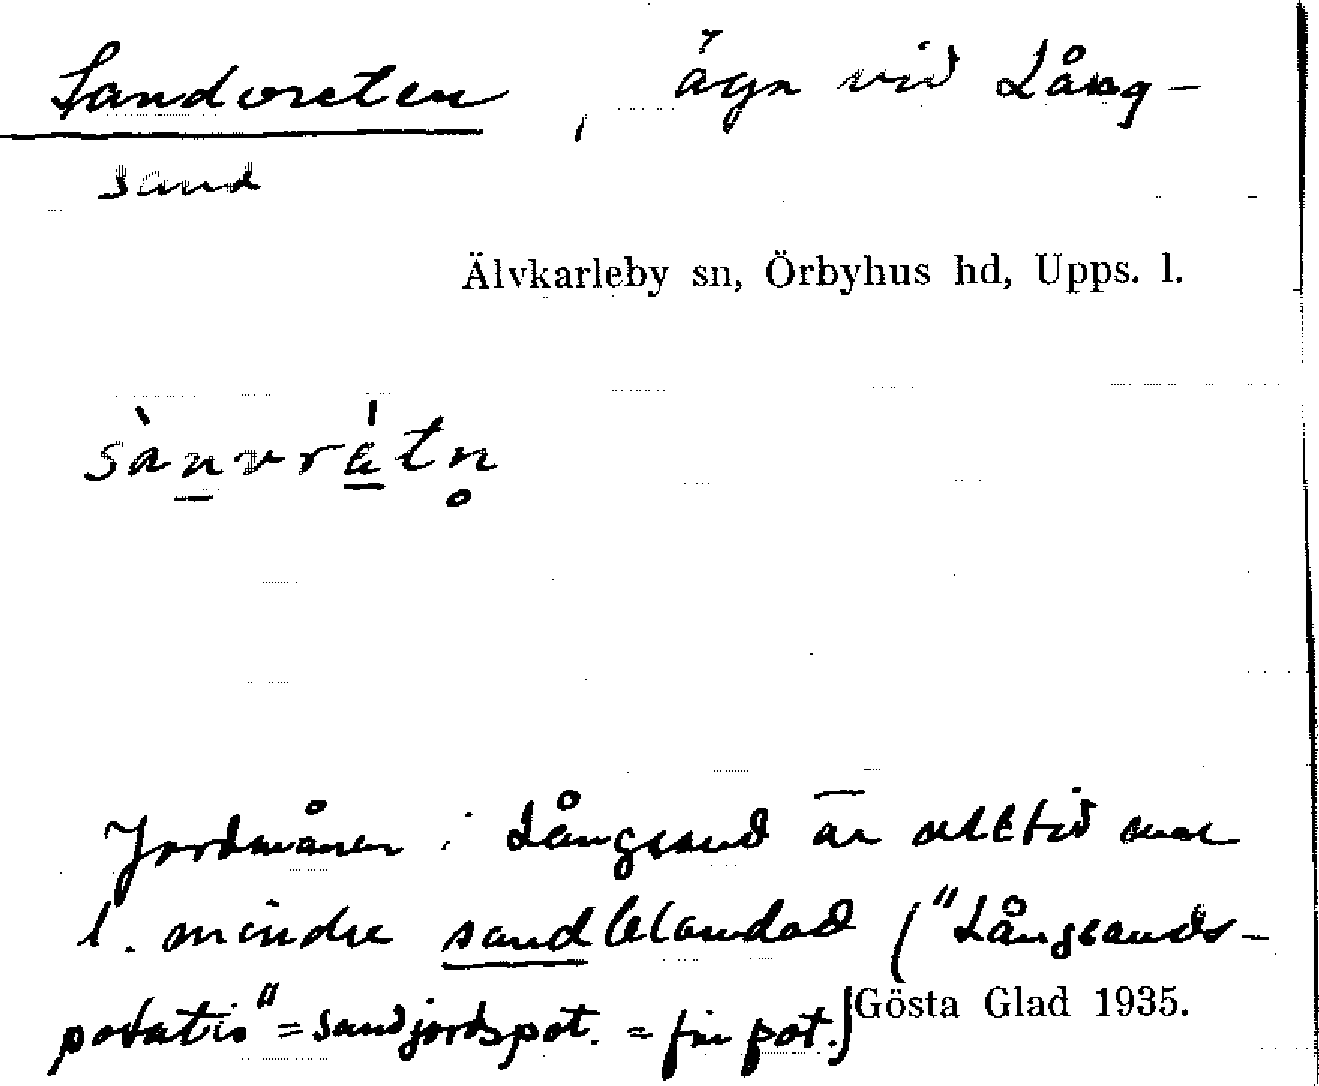 Sandvreten, ägn vid Lång-
sand
Älvkarleby sn, Örbyhus hd, Upps. l.
sànvrátn̥
Jordmånen i Långsand är alltid mer
l. mindre sandblandad ("Långsands-
potatis" = sandjordspot. = fin pot.)
Gösta Glad 1935.